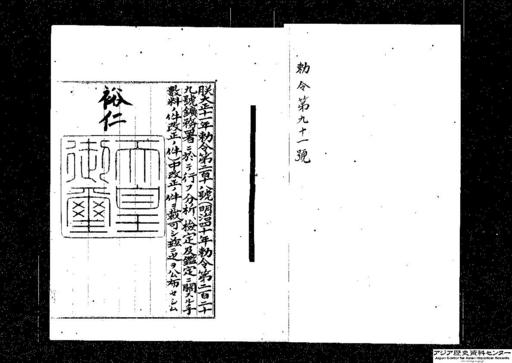 勅令第九十一號
朕大正十一年勅令第 號(明治 十年勅令第二百二十
九號鑛務署ニ於テ行フ分析、檢定及鑑定ニ關スル手
數料ノ件改正ノ件)中改正ノ件ヲ裁可シ玆ニ之ヲ公布セシム
裕仁
天皇
御璽
アジア歴史資料センター
Japan Center for Asian Historical Records